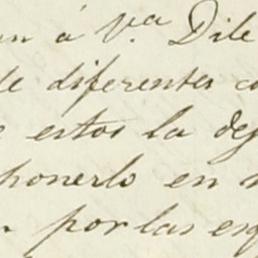 á V.ª Dile
de diferentes
estos la
ponerlo en
por las